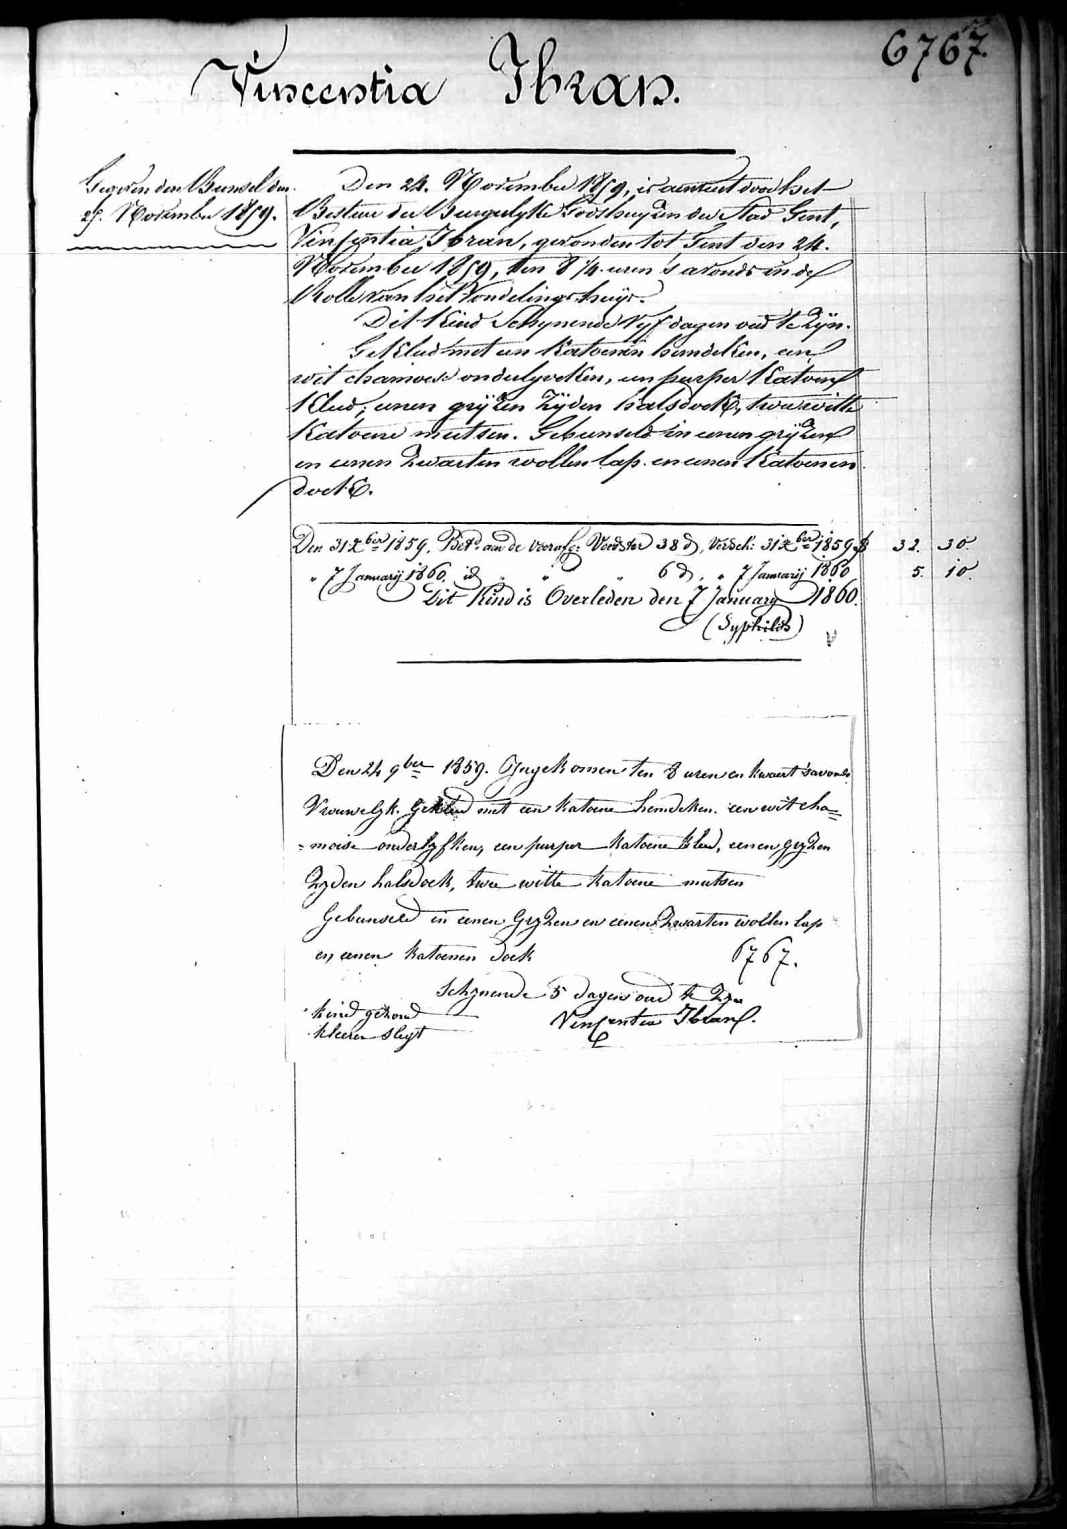 6767.
Vincentia Ibran.
Gegeven den Bunsel den
25. November 1859.
Den 24. November 1859, is aenveert door het
Bestuer der Burgerlyke Godshuyzen der Stad Gent,
Vincentia Ibran, gevonden tot Gent den 24.
November 1859, ten 8 1/4 uren 's avonds in de
Rolle van het Vondelings-huys.
Dit Kind Schynende Vyf dagen oud te Zyn.
Gekleed met een Katoenen hemdeken, een
wit chamoise onderlyveken, een purper Katoen
Kleed, eenen gryzen Zyden halsdoek, twee witte
Katoene mutsen. Gebunseld in eenen gryzen
en eenen Zwarten wollen lap. en eenen Katoenen
doek.
Den 31 Xber 1859. Betd. aan de Voorsz: Voedster 38 d, Versch: 31 Xber 1859 32. 30.
" 7 Januarij 1860. id " " " 6 d, " 7 Januarij 1860 5. 10.
Dit Kind is Overleden den 7 January 1860.
(Syphilis)
Den 24 9ber 1859. Ingekomen ten 8 uren en kwaert 's avonds
Vrouwelyk. Gekleed met een katoene hemdeken. een wit cha=
=moise onderlyfken, een purper katoene kleed, eenen gryzen
Zyden halsdoek, twee witte katoene mutsen
Gebunseld in eenen Gryzen en eenen Zwarten wollen lap
en eenen katoenen doek 6767.
Schynende 5 dagen oud te Zyn
kind gezond
Vincentia Ibran.
kleeren slegt